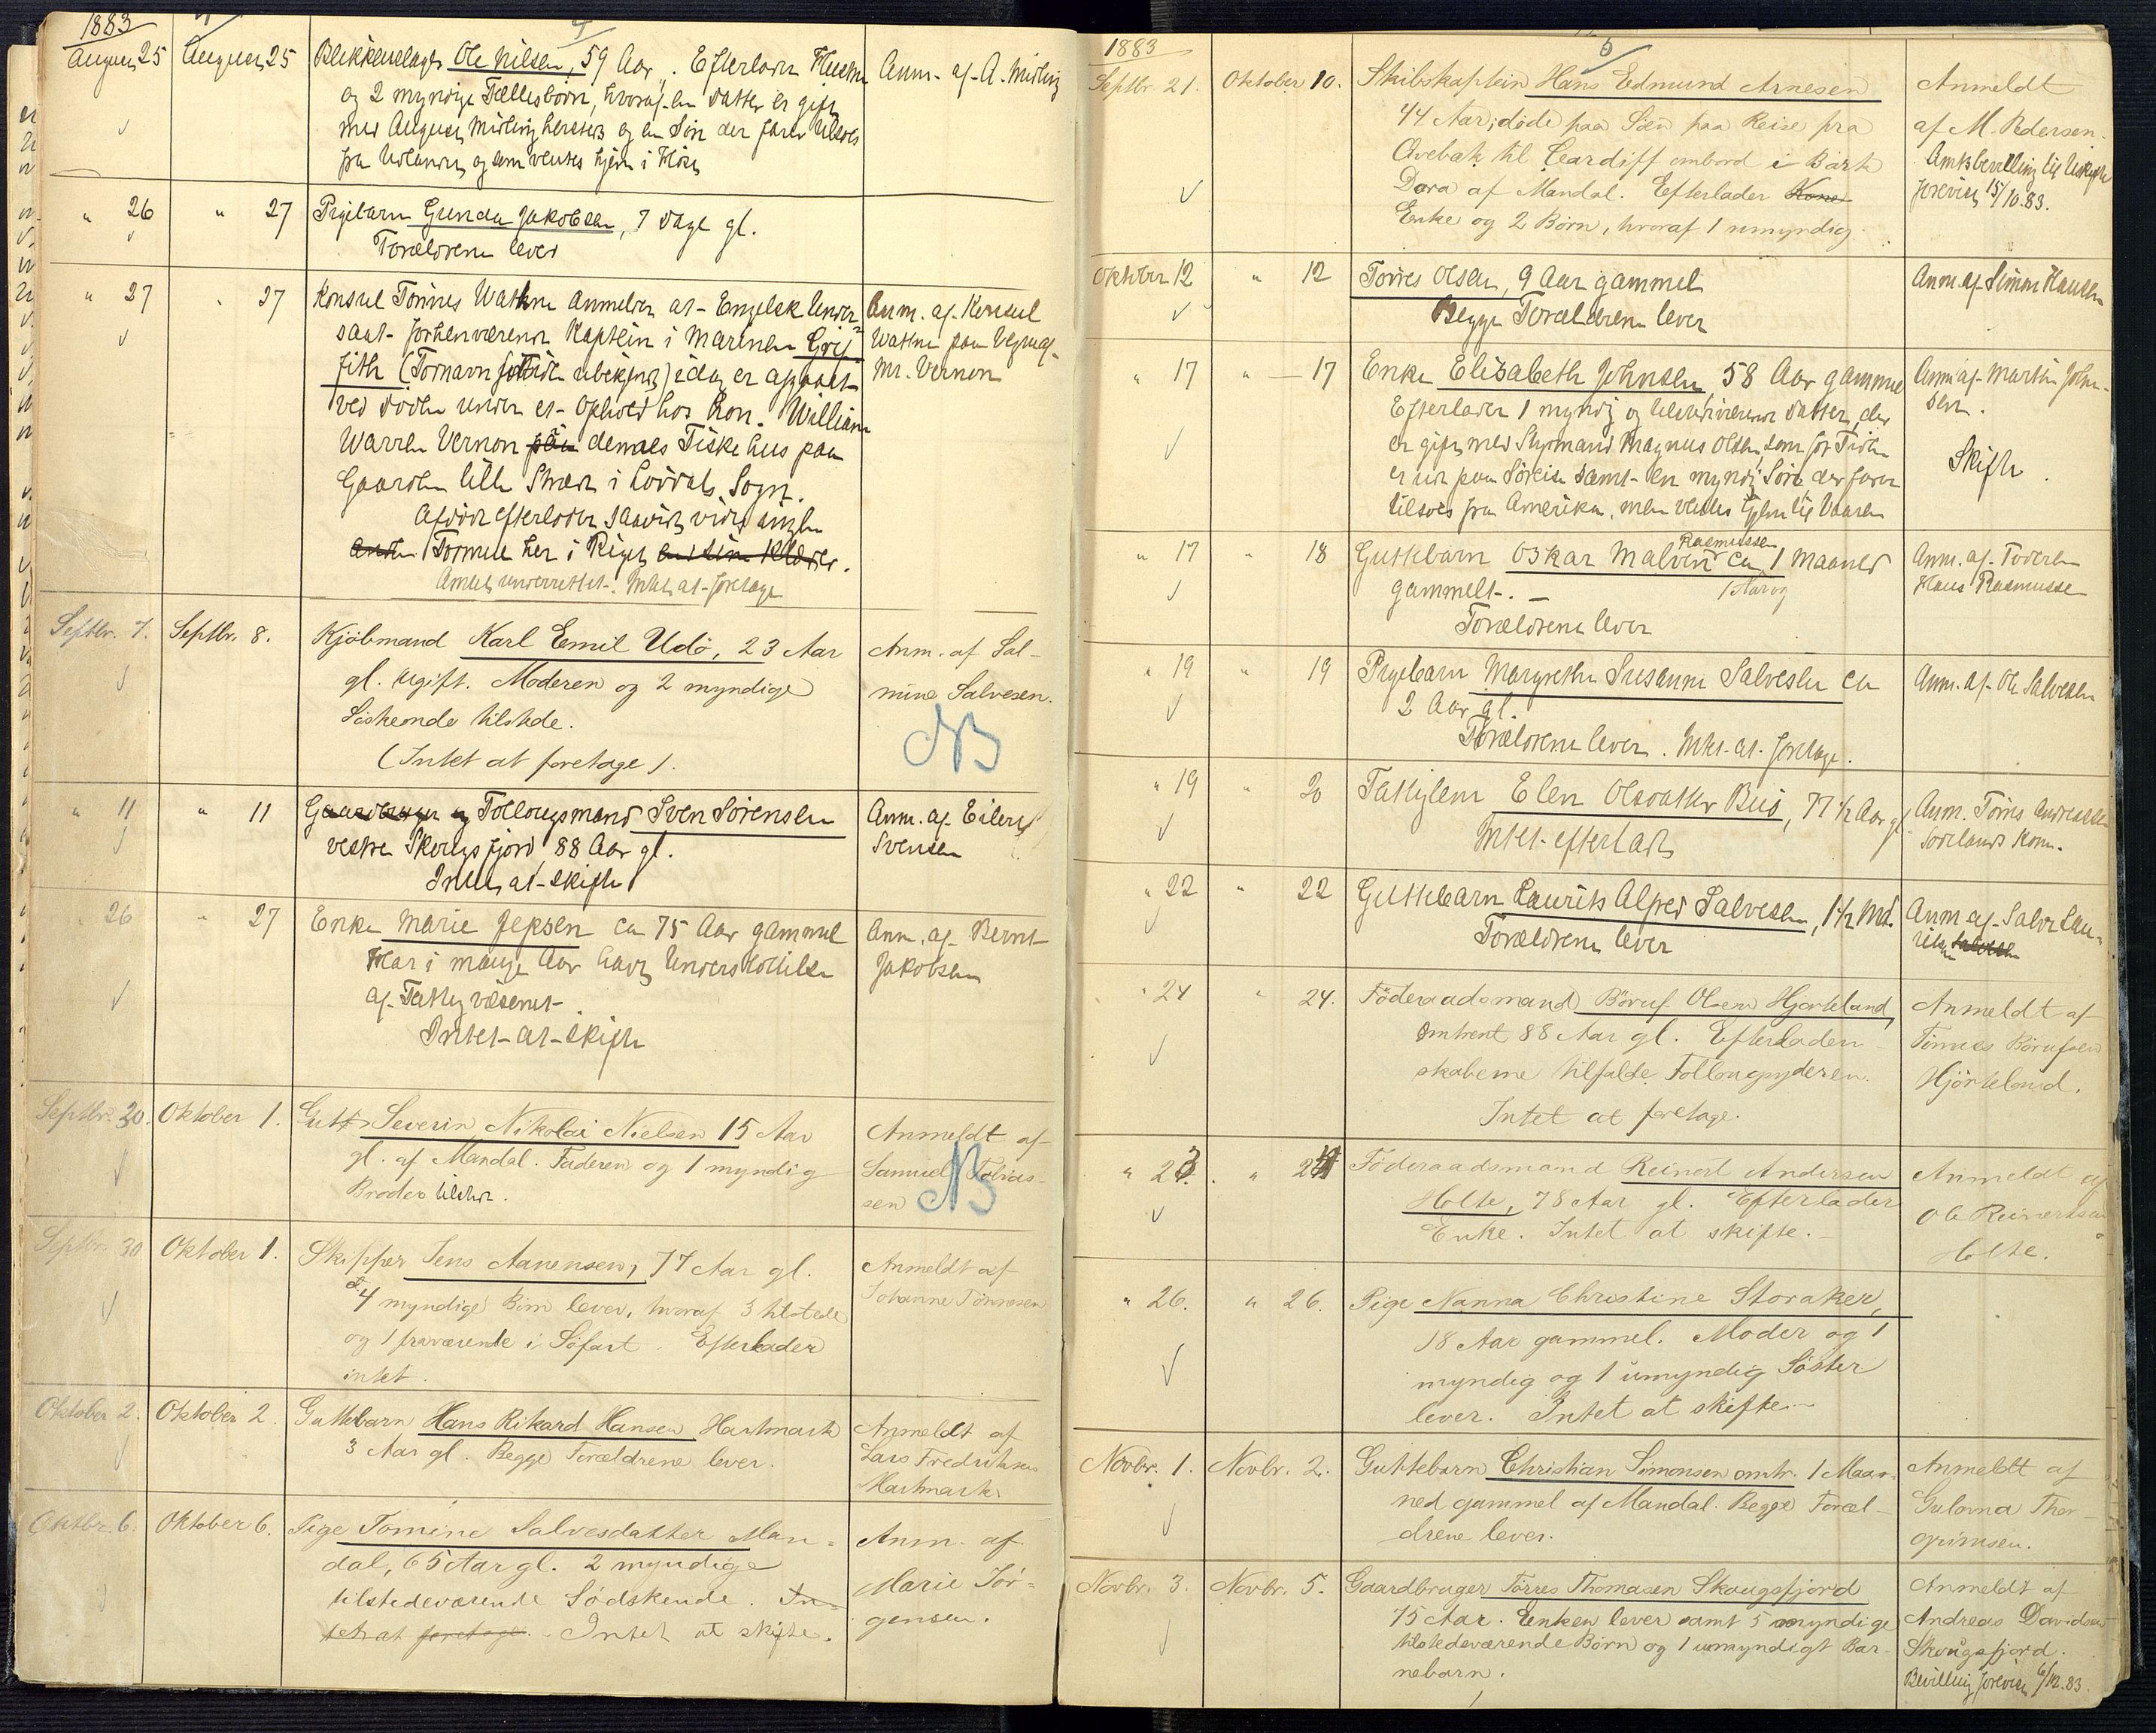 1883
4
August 25 August 25 Blikkenslager Ole Nilsen, 59 Aar. Efterlader Hustru Anm. af A. Midling
og 2 myndige Fællesbørn, hvoraf en Datter er gift
med August Midling hersteds og en Søn der farer tilsøs
fra Udlandet og som ventes hjem i Høst
" 26 " 27 Pigebarn Gunda Jakobsen, 7 Dage gl.
Forældrene lever
" 27 " 27 Konsul Tønnes Wathne anmelder at Engelsk Under= Anm. af Konsul
saat forhenværende Kaptein i Marinen Grif= Wathne paa Vegne af
fith (Fornavn ubekjendt) idag er afgaaet Mr. Vernon
ved Døden under et Ophold hos hon. William
Warren Vernon paa dennes Fiskehus paa
Gaarden lille in Sogn.
Afdøde efterlader saavidt vides ingen
anden Formue her i Riget end sine Klæder.
Amtet underrettet. Intet at foretage
Septbr. 7. Septbr. 8. Kjöbmand Karl Emil Udö, 23 Aar Anm. af Sal-
gl. Ugift. Moderen og 2 myndige mine Salvesen.
Söskende tilstede. NB
(Intet at foretage).
" 11 " 11 Gaardbruger og Follougsmand Sven Sörensen Anm. af Eilert
vestre Skougsfjord, 88 Aar gl. Svensen
Intet at skifte
" 26 " 27 Enke Marie Jepsen ca 75 Aar gammel Anm. af Bernt
Har i mange Aar havt Understøttelse Jakobsen
af Fattigvæsenet.
Intet at skifte
Septbr. 30. Oktober 1. Gut Severin Nikolai Nielsen 15 Aar Anmeldt af
gl. af Mandal. Faderen og 1 myndig Samuel Tobias-
Broder tilstede. sen NB
Septbr. 30 Oktober 1. Skipper Jens Aanensen, 77 Aar gl. Anmeldt af
4 myndige Börn lever, hvoraf 3 tilstede Johanne Tönnesen
og 1 fraværende i Söfart. Efterlader
intet.
Oktober 2. Oktober 2. Guttebarn Hans Rikard Hansen Hartmark Anmeldt af
3 Aar gl. Begge Forældrene lever. Lars Fredriksen
Hartmark.
Oktbr. 6. Oktober 6. Pige Tomine Salvesdatter Man- Anm. af
dal, 65 Aar gl. 2 myndige Marie Jör=
tilstedeværende Södskende. In- gensen.
tet at foretage. Intet at skifte.
1883
5
Septbr. 21. Oktober 10. Skibskaptein Hans Edmund Arnesen Anmeldt
44 Aar; döde paa Söen paa Reise fra af M. Pedersen.
til Cardiff ombord i Bark Amtsbevilling til Uskiftet
Dora af Mandal. Efterlader Kone forevist 15/10.83.
Enke og 2 Börn, hvoraf 1 umyndig.
Oktober 12 " 12 Torres Olsen, 9 Aar gammel Anm. af Simon Hansen
Begge Forældrene lever
" 17 " 17 Enke Elisabeth Johnsen 58 Aar gammel Anm af Martin John-
Efterlader 1 myndig og tilstedeværende Datter, der sen.
er gift med Styrmand Magnus Olsen som for Tiden Skifte.
er ude paa Söreise samt en myndig Sön der farer
tilsøs fra Amerika, men ventes hjem til Vaaren
" 17 " 18 Guttebarn Oskar Malvin Rasmussen ca 1 Maaned Anm. af Faderen
gammelt. 1 Aar og Hans Rasmussen
Forældrene lever
" 19 " 19 Pigebarn Margrethe Susanne Salvesen ca Anm. af Ole Salvesen
2 Aar gl.
Forældrene lever. Intet at foretage.
" 19 " 20 Fattiglem Elen Olsdatter Buö, 77 1/2 Aar gl. Anm. Tönnes Andreassen
Intet efterladt
" 22 " 22 Guttebarn Laurits Alfred Salvesen, 1 1/2 Md. Anm af Salve Lau-
Forældrene lever ritsen
" 24 " 24. Föderaadsmand Böruf Olsen Hjorteland, Anmeldt af
Omtrent 88 Aar gl. Efterladen Tönnes Börufsen
skaberne tilfalde Follougyderen. Hjörteland.
Intet at foretage.
" 23. " 24 Föderaadsmand Reinert Andersen Anmeldt af
Holte, 78 Aar gl. Efterlader Ole Reinertsen
Enke. Intet at skifte. Holte.
" 26. " 26. Pige Nanna Christine Storaker,
18 Aar gammel. Moder og 1
myndig og 1 umyndig Söster
lever. Intet at skifte
Novbr. 1. Novbr. 2. Guttebarn Christian Simonsen omtr. 1 Maa- Anmeldt af
ned gammel af Mandal. Begge Foræl- Gulovna Thor-
drene lever. grimsen.
Novbr. 3. Novbr. 5. Gaardbruger Törres Thomasen Skougsfjord Anmeldt af
75 Aar. Enken lever samt 5 myndige Andreas Davidsen
tilstedeværende Börn og 1 umyndigt Bar- Skougsfjord.
nebarn. Bevilling forevist 6/12.83.